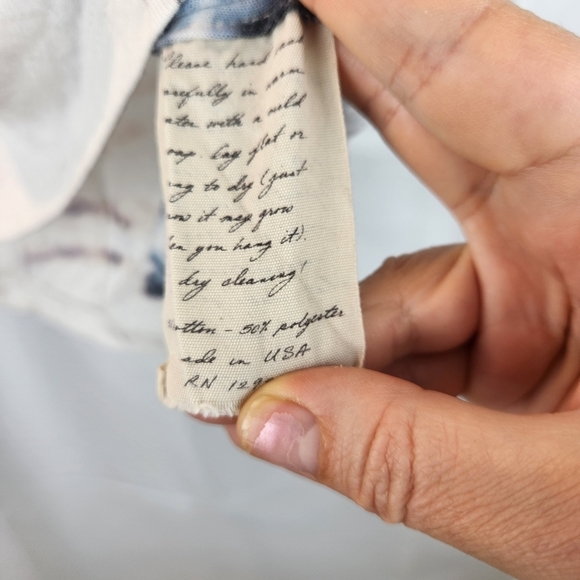 Please hand
carefully in warm
water with a mild
soap. Lay flat or
hang to dry (just
know it may grow
when you hang it).
dry cleaning!
cotton - 50% polyester
made in USA
RN 129